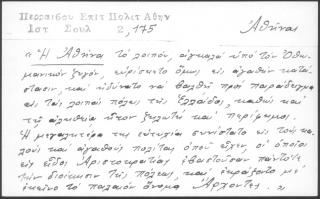 Περραιβου Επιτ Πολιτ Αθην
Ιστ Σουλ 2,175
Ἀθῆναι
« Ἡ Ἀθῆνα τὸ λοιπὸν, ἀγκαλὰ ὑπὸ τὸν Ὀθω-
μανικὸν ζυγὸν, εὑρίσκετο ὅμως εἰς ἀγαθὴν κατά-
στασιν, καὶ ἠδύνατο νὰ βαλθῇ πρὸς παράδειγμα
εἰς τὰς λοιπὰς πόλεις τῆς Ἑλλάδος, καθὼς καὶ
τῇ ἀληθείᾳ ἦτον ζηλωτὴ καὶ περίφημος.
Ἡ μεγαλητέρα της εὐτυχία συνίστατο εἰς τοὺς κα-
λοὺς καὶ ἀγαθοὺς πολίτας ὁποῦ εἶχεν, οἱ ὁποῖοι
εἰς εἶδος Ἀριστοκρατίας ἐβαστοῦσαν πάντοτε
τὴν διοίκησιν τῆς πόλεως, καὶ ἐκράζοντο μὲ
ἐκεῖνο τὸ παλαιὸν ὄνομα Ἄρχοντες. »